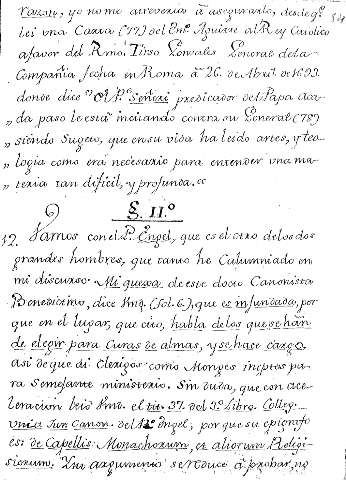 razon, yo no me atreveria á asegurarlo, desde qe. 54
lei una Carta (77) del Emo. Aguirre al Rey Catolico
a favor del Rmo. Tirso Gonzales General de la
Compañia fecha en Roma á 26. de Abril de 1693.
donde dice "El Pe. Señeri predicador del Papa ca-
" da paso le está incitando contra su General (78)
" siendo Sugeto, que en su vida ha leido artes, y teo-
" logia como era necesario para entender una ma-
" teria tan dificil, y profunda.
§. II.º
12. Vamos con el P. Engel, que es el otro de los dos
grandes hombres, que tanto he Calumniado en
mi discurso. Mi quexa de este docto Canonista
Benedictino, dice Vmd. (fol. 6.), que es infundada, por
que en el lugar, que cito, habla de los que se han
de elegir para Curas de almas, y se hace cargo
asi de que di Clerigos como Monges ineptos pa
ra semejante ministerio. Sin duda, que con ace-
leracion leió Vmd. el tit. 37. del 3º. Libro. Colleg.
Univ. Jur. Canon. del P. Engel; por que su epigrafe
es: de Capellis Monachorum, et aliorum Religi-
osorum. Su argumento se reduce á probar, no